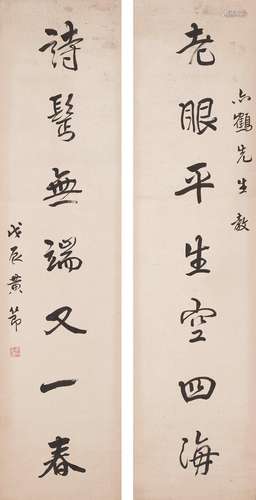 亦鶴先生教
老眼平生空四海
詩髩無端又一春
戊辰黄节